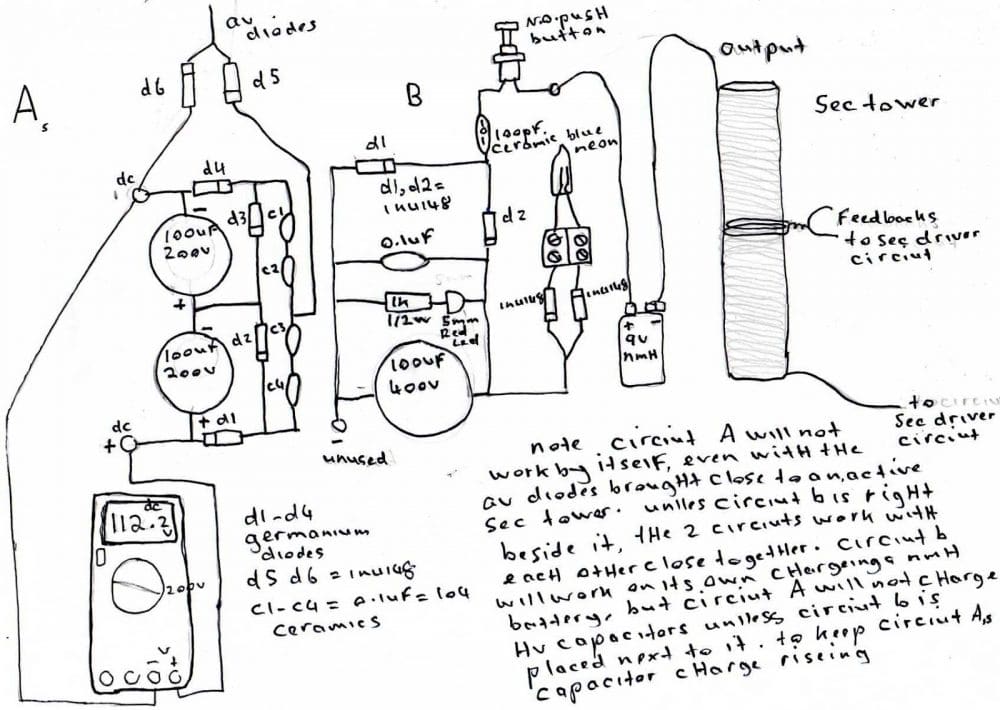 av
diodes
d6
d5
A,s
dc
d4
-
d3
c1
100uF
200v
c2
+
-
d2
c3
100uF
200v
c4
+
d1
dc
+
dc
112.2
v
200v
v
- +
d1-d4
germanium
diodes
d5 d6 = 1nu148
c1-c4 = 0.1uF = 104
ceramics
B
N.O. pusH
button
101
100pF
ceramic
blue
neon
d1
d1, d2 =
1nu148
d2
0.1uF
1k
1/2w
5mm
Red
Led
1nu148
1nu148
100uF
400v
-
unused
+ -
9v
nmH
output
Sec tower
Feedbacks
to sec driver
circiut
to circiut
Sec driver
circiut
note circiut A will not
work by itself, even witH tHe
av diodes brougHt close to an, active
Sec tower. unlles circiut b is rigHt
beside it, tHe 2 circiuts work witH
eacH otHer close togetHer. circiut b
will work on its own cHargeing a nmH
battery, but circiut A will not cHarge
Hv capacitors unlless circiut b is
placed next to it. to keep circiut A,s
capacitor cHarge riseing